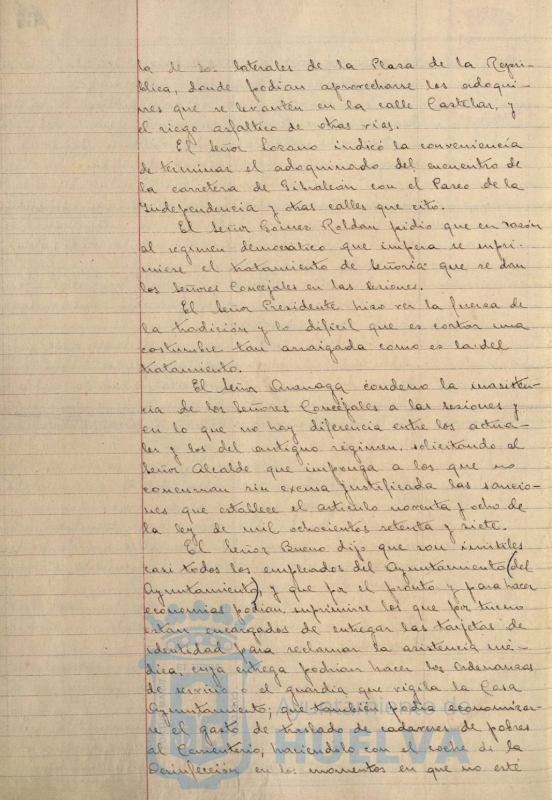 la de los laterales de la Plaza de la Repú-
blica, donde podian aprovecharse los adoqui-
nes que se levanten en la calle Castelar, y
el riego asfaltico de otras vias.
El Señor Lozano indicó la conveniencia
de terminar el adoquinado del encuentro de
la carretera de Gibraleón con el Paseo de la
Independencia y otras calles que citó.
El Señor Gomez Roldan pidió que en razón
al regimen democratico que impera se supri-
miese el tratamiento de Señoria que se dan
los Señores Concejales en las sesiones.
El Señor Presidente hizo ver la fuerza de
la tradición y lo dificil que es cortar una
costumbre tan arraigada como es la del
tratamiento.
El Señor condenó la inasisten-
cia de los Señores Concejales a las sesiones y
en lo que no hay diferencia entre los actua-
les y los del antiguo régimen, solicitando al
Señor Alcalde que imponga a los que no
concurran sin excusa justificada las sancio-
nes que establece el articulo noventa y ocho de
la ley de mil ochocientos setenta y siete.
El Señor Bueno dijo que son inútiles
casi todos los empleados del Ayuntamiento (del
Ayuntamiento), y que por el pronto y para hacer
economias podian suprimirse los que por turno
están encargados de entregar las tarjetas de
identidad para reclamar la asistencia mé-
dica, cuya entrega podrian hacer los Ordenanzas
de servicio o el guardia que vigila la Casa
Ayuntamiento; que también podia economizar-
se el gasto de traslado de cadaveres de pobres
al Cementerio, haciendolo con el coche de la
Desinfección en los momentos en que no esté
Ayuntamiento de
HUELVA